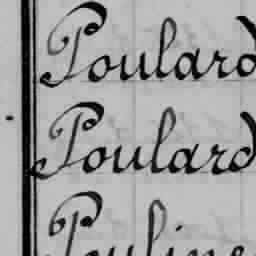 Poulard
Poulard
Pouline